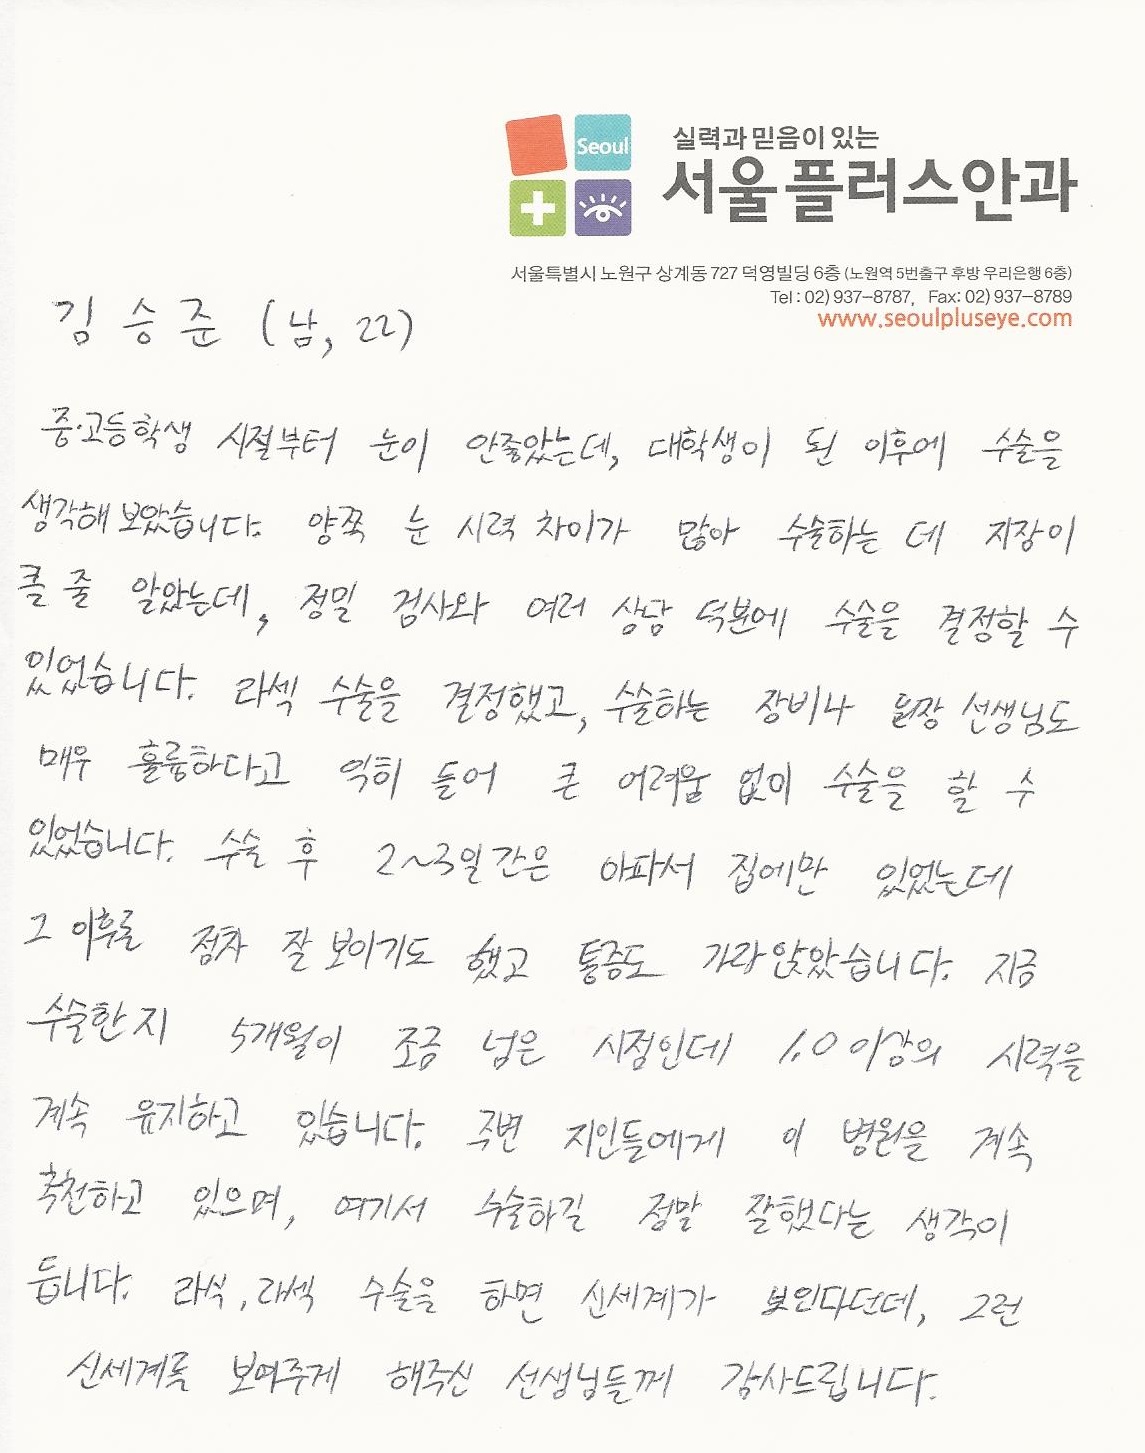 Seoul
실력과 믿음이 있는
서울플러스안과
서울특별시 노원구 상계동 727 덕영빌딩 6층 (노원역 5번출구 후방 우리은행 6층)
Tel : 02) 937-8787, Fax: 02) 937-8789
www.seoulpluseye.com
김승준 (남, 22)
중·고등학생 시절부터 눈이 안좋았는데, 대학생이 된 이후에 수술을
생각해 보았습니다. 양쪽 눈 시력 차이가 많아 수술하는 데 지장이
클 줄 알았는데, 정밀 검사와 여러 상담 덕분에 수술을 결정할 수
있었습니다. 라섹 수술을 결정했고, 수술하는 장비나 원장 선생님도
매우 훌륭하다고 익히 들어 큰 어려움 없이 수술을 할 수
있었습니다. 수술 후 2~3일간은 아파서 집에만 있었는데
그 이후로 점차 잘 보이기도 했고 통증도 가라앉았습니다. 지금
수술한지 5개월이 조금 넘은 시점인데 1.0 이상의 시력을
계속 유지하고 있습니다. 주변 지인들에게 이 병원을 계속
추천하고 있으며, 여기서 수술하길 정말 잘했다는 생각이
듭니다. 라식, 라섹 수술을 하면 신세계가 보인다던데, 그런
신세계를 보여주게 해주신 선생님들께 감사드립니다.